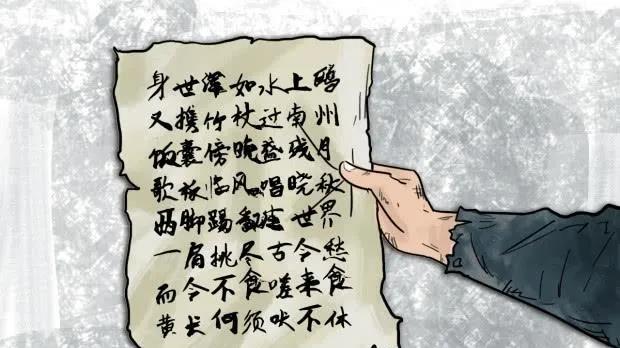 身世渾如水上鸥
又携竹杖过南州
饭囊傍晚盛残月
歌板临风唱晓秋
两脚踢翻塵世界
一肩挑尽古今愁
而今不食嗟来食
黄犬何须吠不休